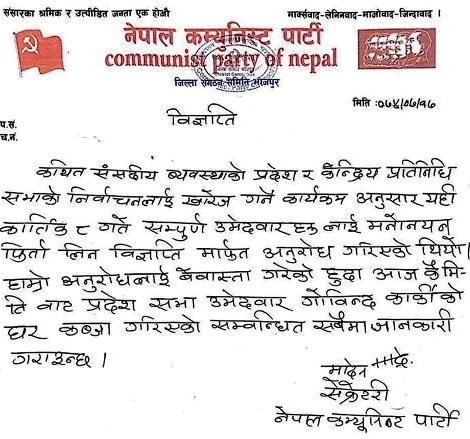 संसारका श्रमिक र उत्पीडित जनता एक होऔं
मार्क्सवाद-लेनिनवाद-माओवाद-जिन्दावाद ।
नेपाल कम्युनिस्ट पार्टी
communist party of nepal
जिल्ला संगठन समिति भोजपुर
मिति :०७४/०७/१८
प.सं.
च.नं.
विज्ञप्ति
कथित संसदीय व्यवस्थाको प्रदेश र केन्द्रिय प्रतिनिधि
सभाको निर्वाचनलाई खारेज गर्ने कार्यक्रम अनुसार यही
कार्तिक ८ गते सम्पुर्ण उमेदवार हरु लाई मनोनयन्
फिर्ता लिन विज्ञप्ति मार्फत अनुरोध गरिएको थियो।
हाम्रो अनुरोधलाई वेवास्ता गरेको हुदा आज कै मि-
ति वाट प्रदेश सभा उमेदवार गोविन्द कार्की को
घर कब्जा गरिएको सम्वन्धित सबैमा जानकारी
गराइन्छ ।
सेक्रेटरी
नेपाल कम्युनिष्ट पार्टी